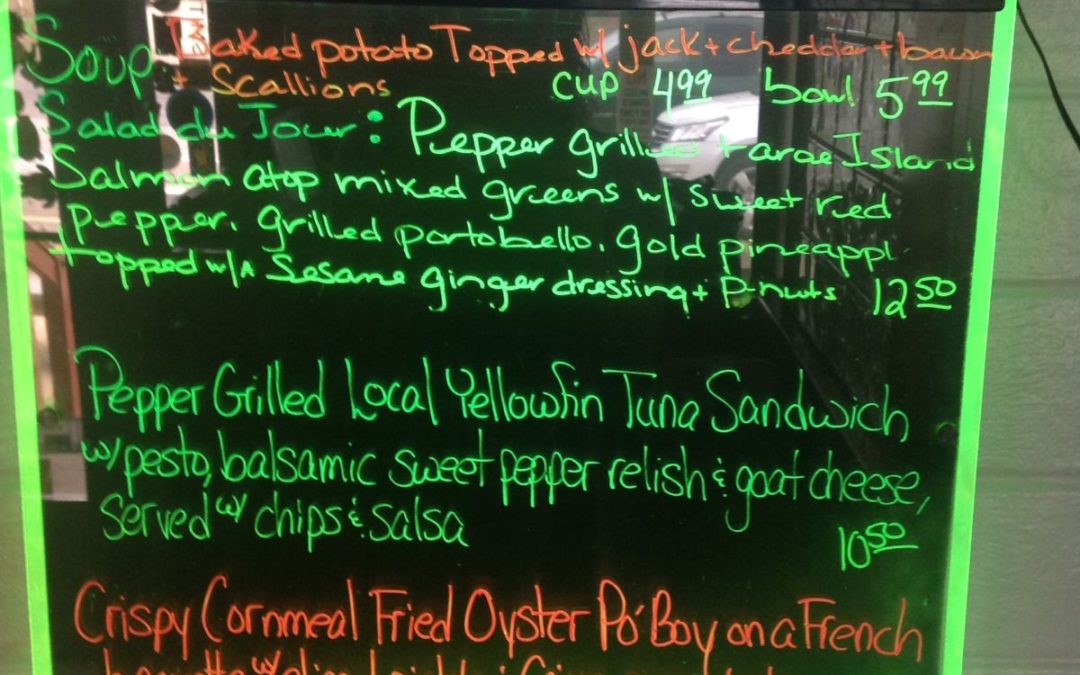 Soup Baked potato Topped w/ jack + cheddar + bacon
+ Scallions cup 4.99 bowl 5.99
Salad du Jour: Pepper grilled Faroe Island
Salmon atop mixed greens w/ sweet red
pepper, grilled portobello, gold pineappl
topped w/ a Sesame ginger dressing + P-nuts 12.50
Pepper Grilled Local Yellowfin Tuna Sandwich
w/ pesto, balsamic sweet pepper relish & goat cheese,
Served w/ chips & salsa
10.50
Crispy Cornmeal Fried Oyster Po' Boy on a French